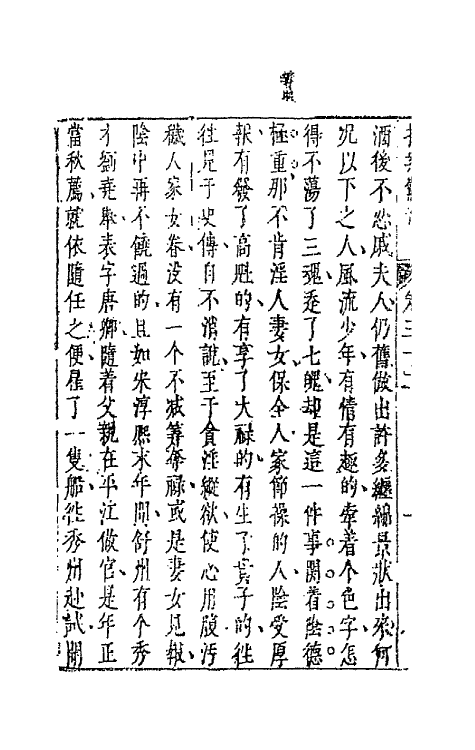 酒後不忍戚夫人仍舊做出許多纏綿景狀出來何
况以下之人風流少年有情有趣的牽着个色字怎
得不蕩了三魂迷了七魄却是這一件事關着陰德
極重那不肯淫人妻女保全人家節操的人陰受厚
報有發了高魁的有享了大祿的有生了貴子的徃
徃見于史傳自不消說至于貪淫縱欲使心用腹污
穢人家女眷没有一个不减筭奪祿或是妻女見報
陰中再不饒過的且如宋淳熙末年間舒州有个秀
才劉堯舉表字唐卿隨着父親在平江做官是年正
當秋薦就依隨任之便雇了一隻船徃秀州赴試開